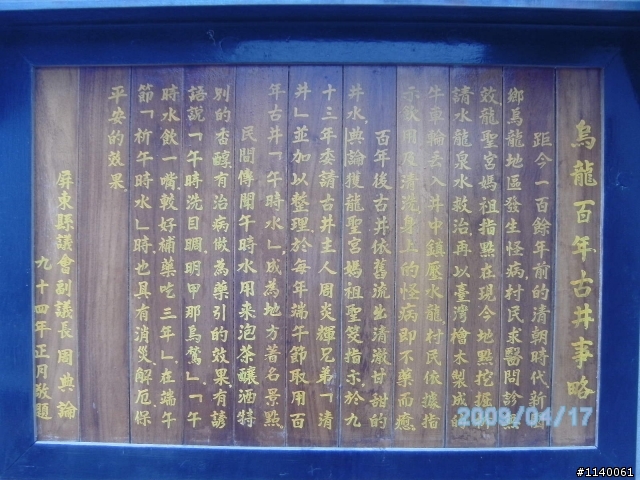 烏龍百年古井事略
距今一百餘年前的清朝時代新園
鄉烏龍地區發生怪病,村民求醫問診無
效,龍聖宮媽祖指點在現今地點挖掘
請水龍泉水救治,再以臺灣檜木製成的
牛車輪丟入井中鎮壓水龍,村民依據指
示飲用及清洗身上的怪病即不藥而癒。
百年後古井依舊流出清澈甘甜的
井水,典論獲龍聖宮媽祖聖筊指示,於九
十三年委請古井主人周炎輝兄弟「清
井」並加以整理於每年端午節取用百
年古井「午時水」,成為地方著名景點。
民間傳聞午時水用來泡茶釀酒特
別的香醇,有治病做為藥引的效果,有諺
語說「午時洗目睭,明甲那烏鶖」,「午
時水飲一嘴,較好補藥吃三年」,在端午
節「祈午時水」時也具有消災解厄,保
平安的效果。
屏東縣議會副議長周典論
九十四年正月敬題
2009/04/17
#1140061